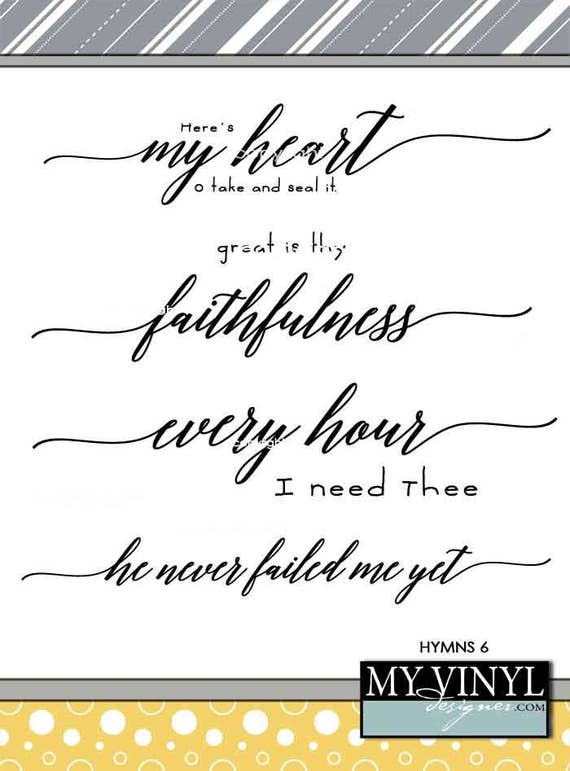 Here's
my heart
O take and seal it
great is thy
faithfulness
every hour
I need Thee
he never failed me yet
HYMNS 6
MY VINYL
designer.COM